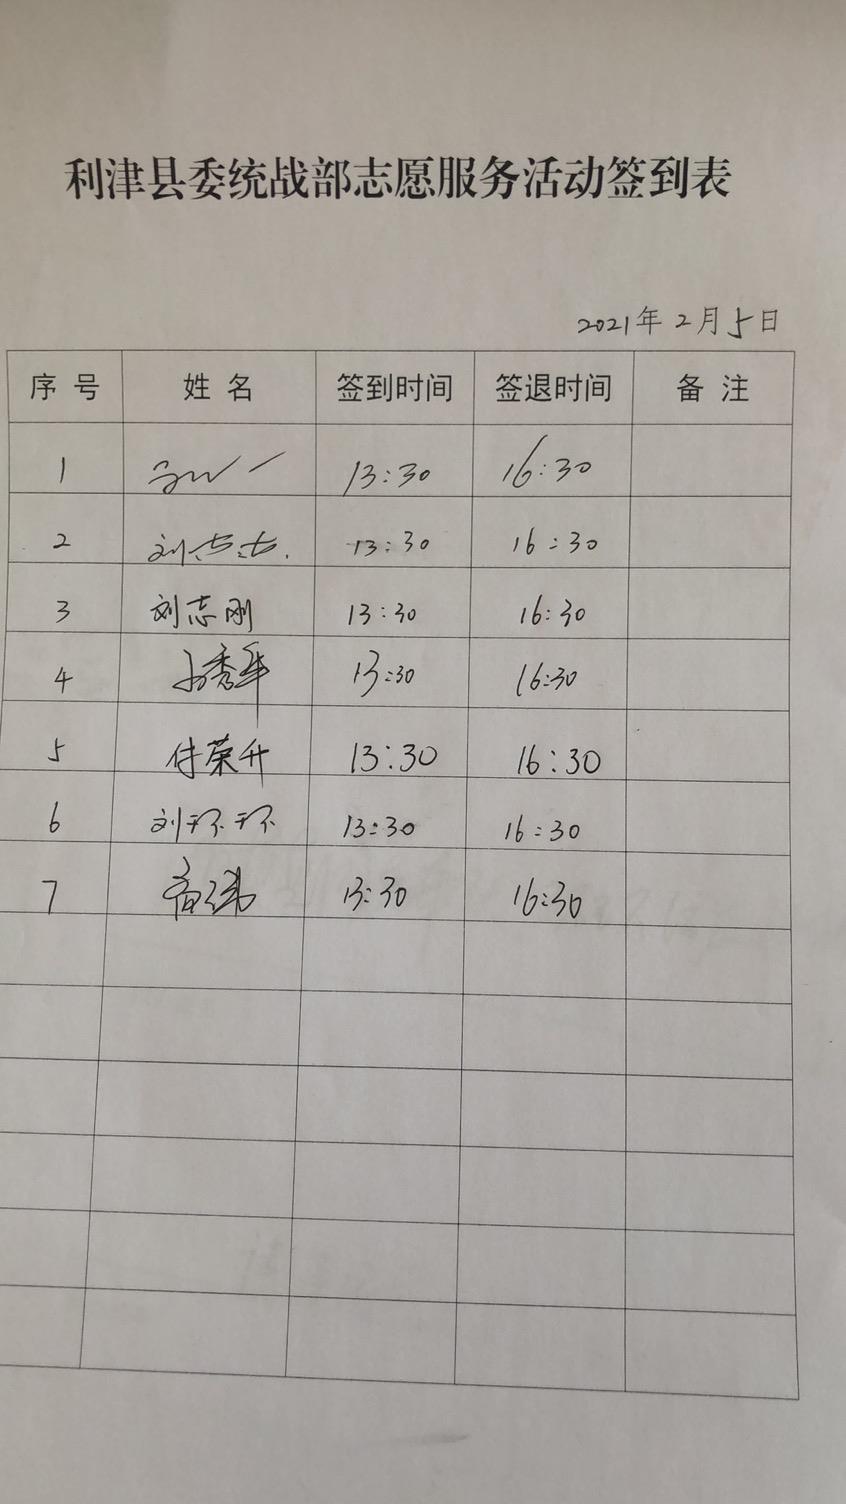 利津县委统战部志愿服务活动签到表
2021年2月5日
序号 姓名 签到时间 签退时间 备注
1 13:30 16:30
2 刘 13:30 16:30
3 刘志刚 13:30 16:30
4 秀军 13:30 16:30
5 付荣升 13:30 16:30
6 刘环环 13:30 16:30
7 13:30 16:30